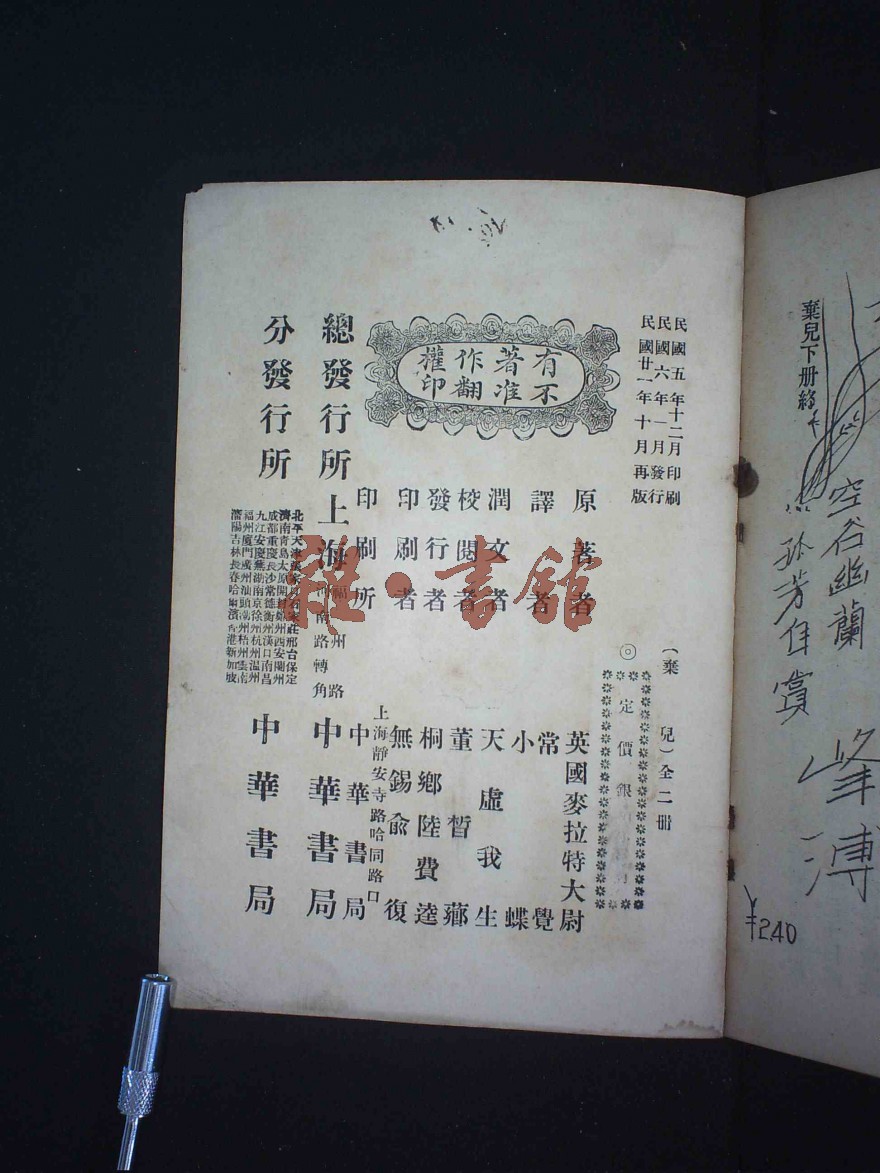 棄兒下册終
空谷幽蘭
孤芳自賞
峰溥
¥2.40
民國五年十二月印刷
民國六年一月發行
民國廿一年十月再版
有著作權
不准翻印
（棄兒）全二册
◎定價銀
原著者 英國麥拉特大尉
譯者 常覺
小蝶
潤文者 天虛我生
校閱者 董皙薌
發行者 桐鄉陸費逵
印刷者 無錫俞復
印刷所 上海靜安寺路哈同路口
中華書局
總發行所 上海福州路河南路轉角 中華書局
分發行所
北平天津張家口石家莊邢台保定
濟南青島太原開封鄭州西安蘭州
成都重慶長沙常德衡州漢口南昌
九江安慶蕪湖南京徐州杭州溫州
福州廈門廣州汕頭潮州梧州雲南
瀋陽吉林長春哈爾濱香港新加坡
中華書局
雅·書館